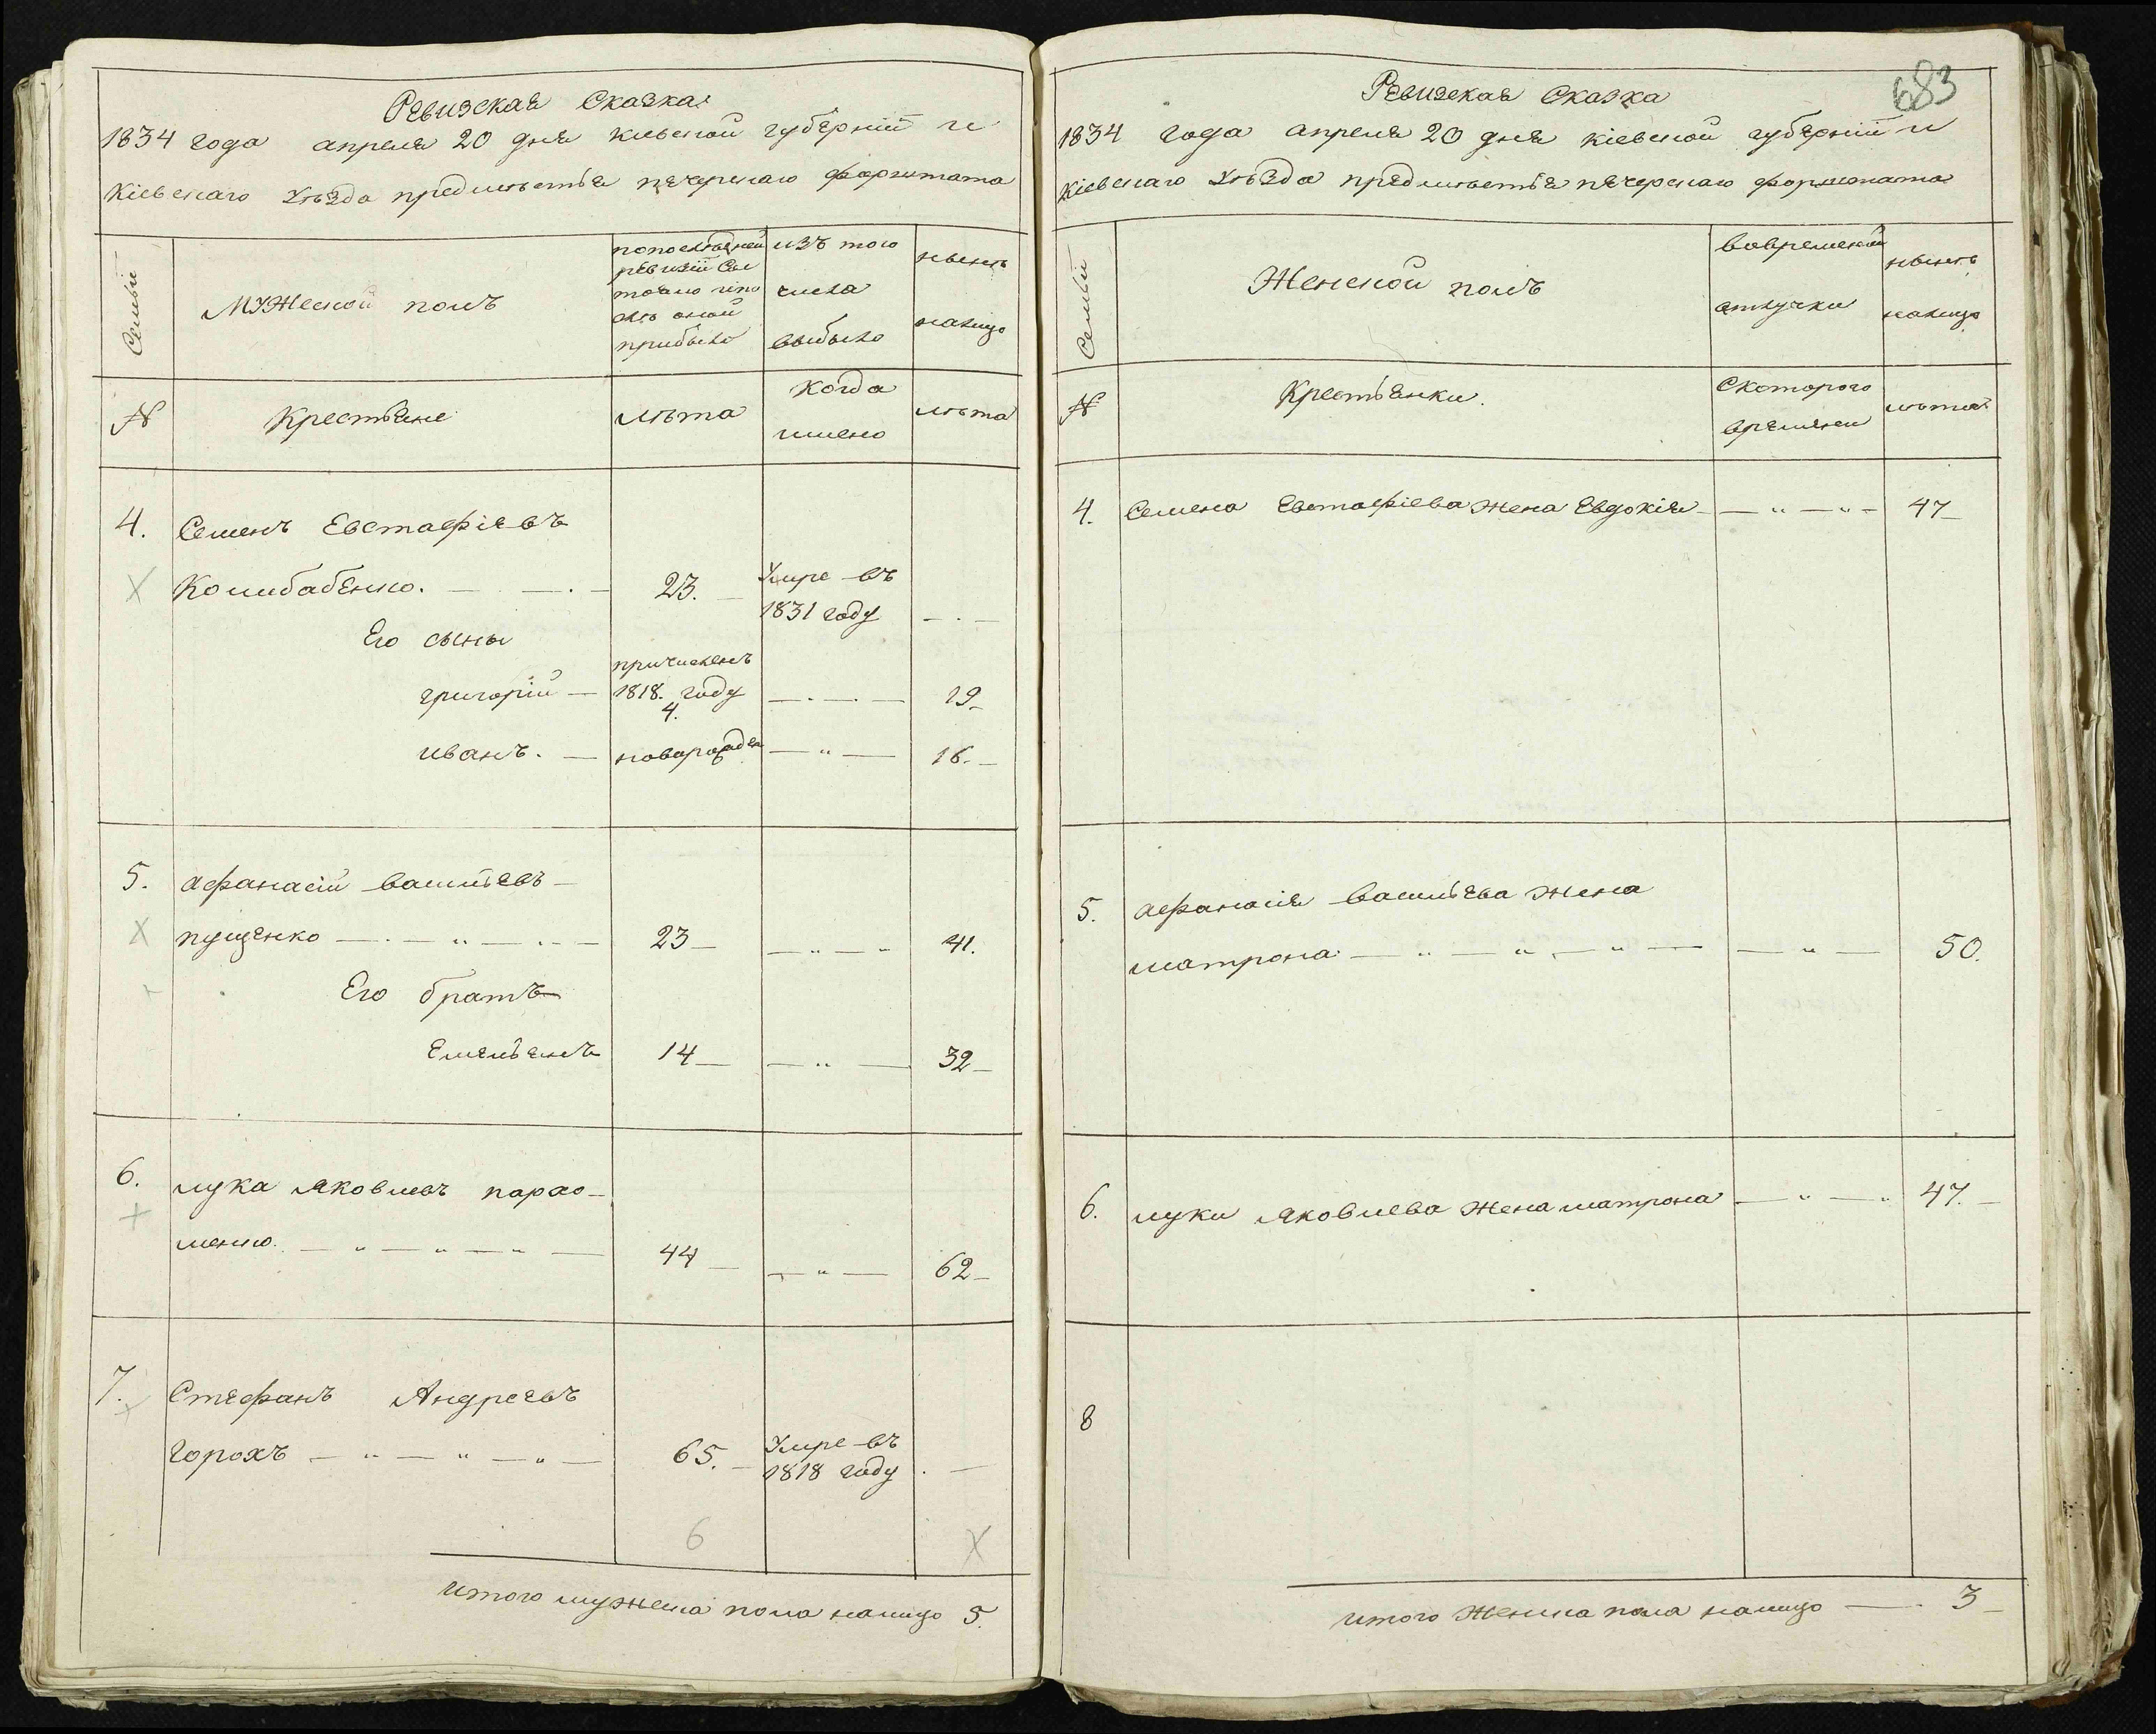 Ревизская Сказка
1834 года апреля 20 дня киевской губернїй и
Кіевскаго Уѣзда предмѣстья печерскаго форштата
Семьи
Мужеской полъ
попослѣдней
ревизїи сос
тояло ипо
слѣ оной
прибыло
изъ того
числа
выбыло
нынѣ
налицо
№
Крестьяне
лѣта
Когда
имено
лѣта
4.
Семенъ Евстафіевъ
Кошбабенко. 23. Умре въ
1831 году
Его сыны
причисленъ
григорїй 1818. году 19
4.
иванъ. новорожден 16.
5. афанасїй васильевъ
пущенко 23 41.
Его братъ
Емельянъ 14 32
6. лука яковлевъ парао-
менко. 44 62
7. Стефанъ Андреевъ
Горохъ 65. Умре въ
1818 году
6 X
итого мужеска пола налицо 5.
683
Ревизская Сказка
1834 года апреля 20 дня кіевской губернїй и
кіевскаго Уѣзда предмѣстья печерскаго форштата
Семьи
Женской полъ
вовременной
отлучки
нынѣ
налицо
№
Крестьянки.
Скоторого
времени
лѣта
4. Семена Евстафіева жена Евдокія 47
5. афанасїя васильева жена
матрона 50.
6. луки яковлева жена матрона 47.
8
итого женска пола налицо 3